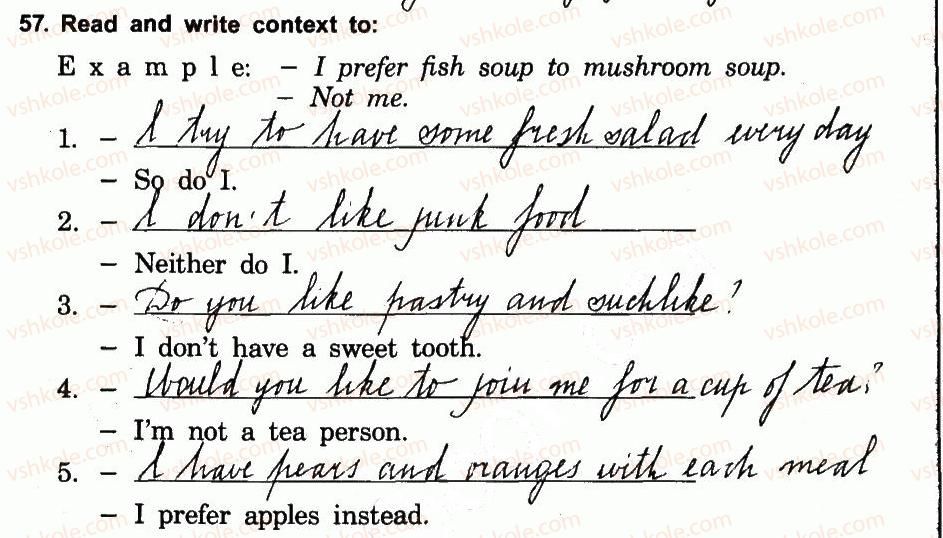 57. Read and write context to:
E x a m p l e: – I prefer fish soup to mushroom soup.
– Not me.
1. – I try to have some fresh salad every day
– So do I.
2. – I don't like junk food
– Neither do I.
3. – Do you like pastry and suchlike?
– I don't have a sweet tooth.
4. – Would you like to join me for a cup of tea?
– I'm not a tea person.
5. – I have pears and oranges with each meal
– I prefer apples instead.